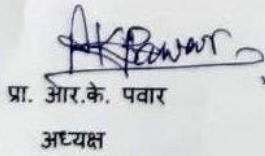 RKPawar
प्रा. आर.के. पवार
अध्यक्ष